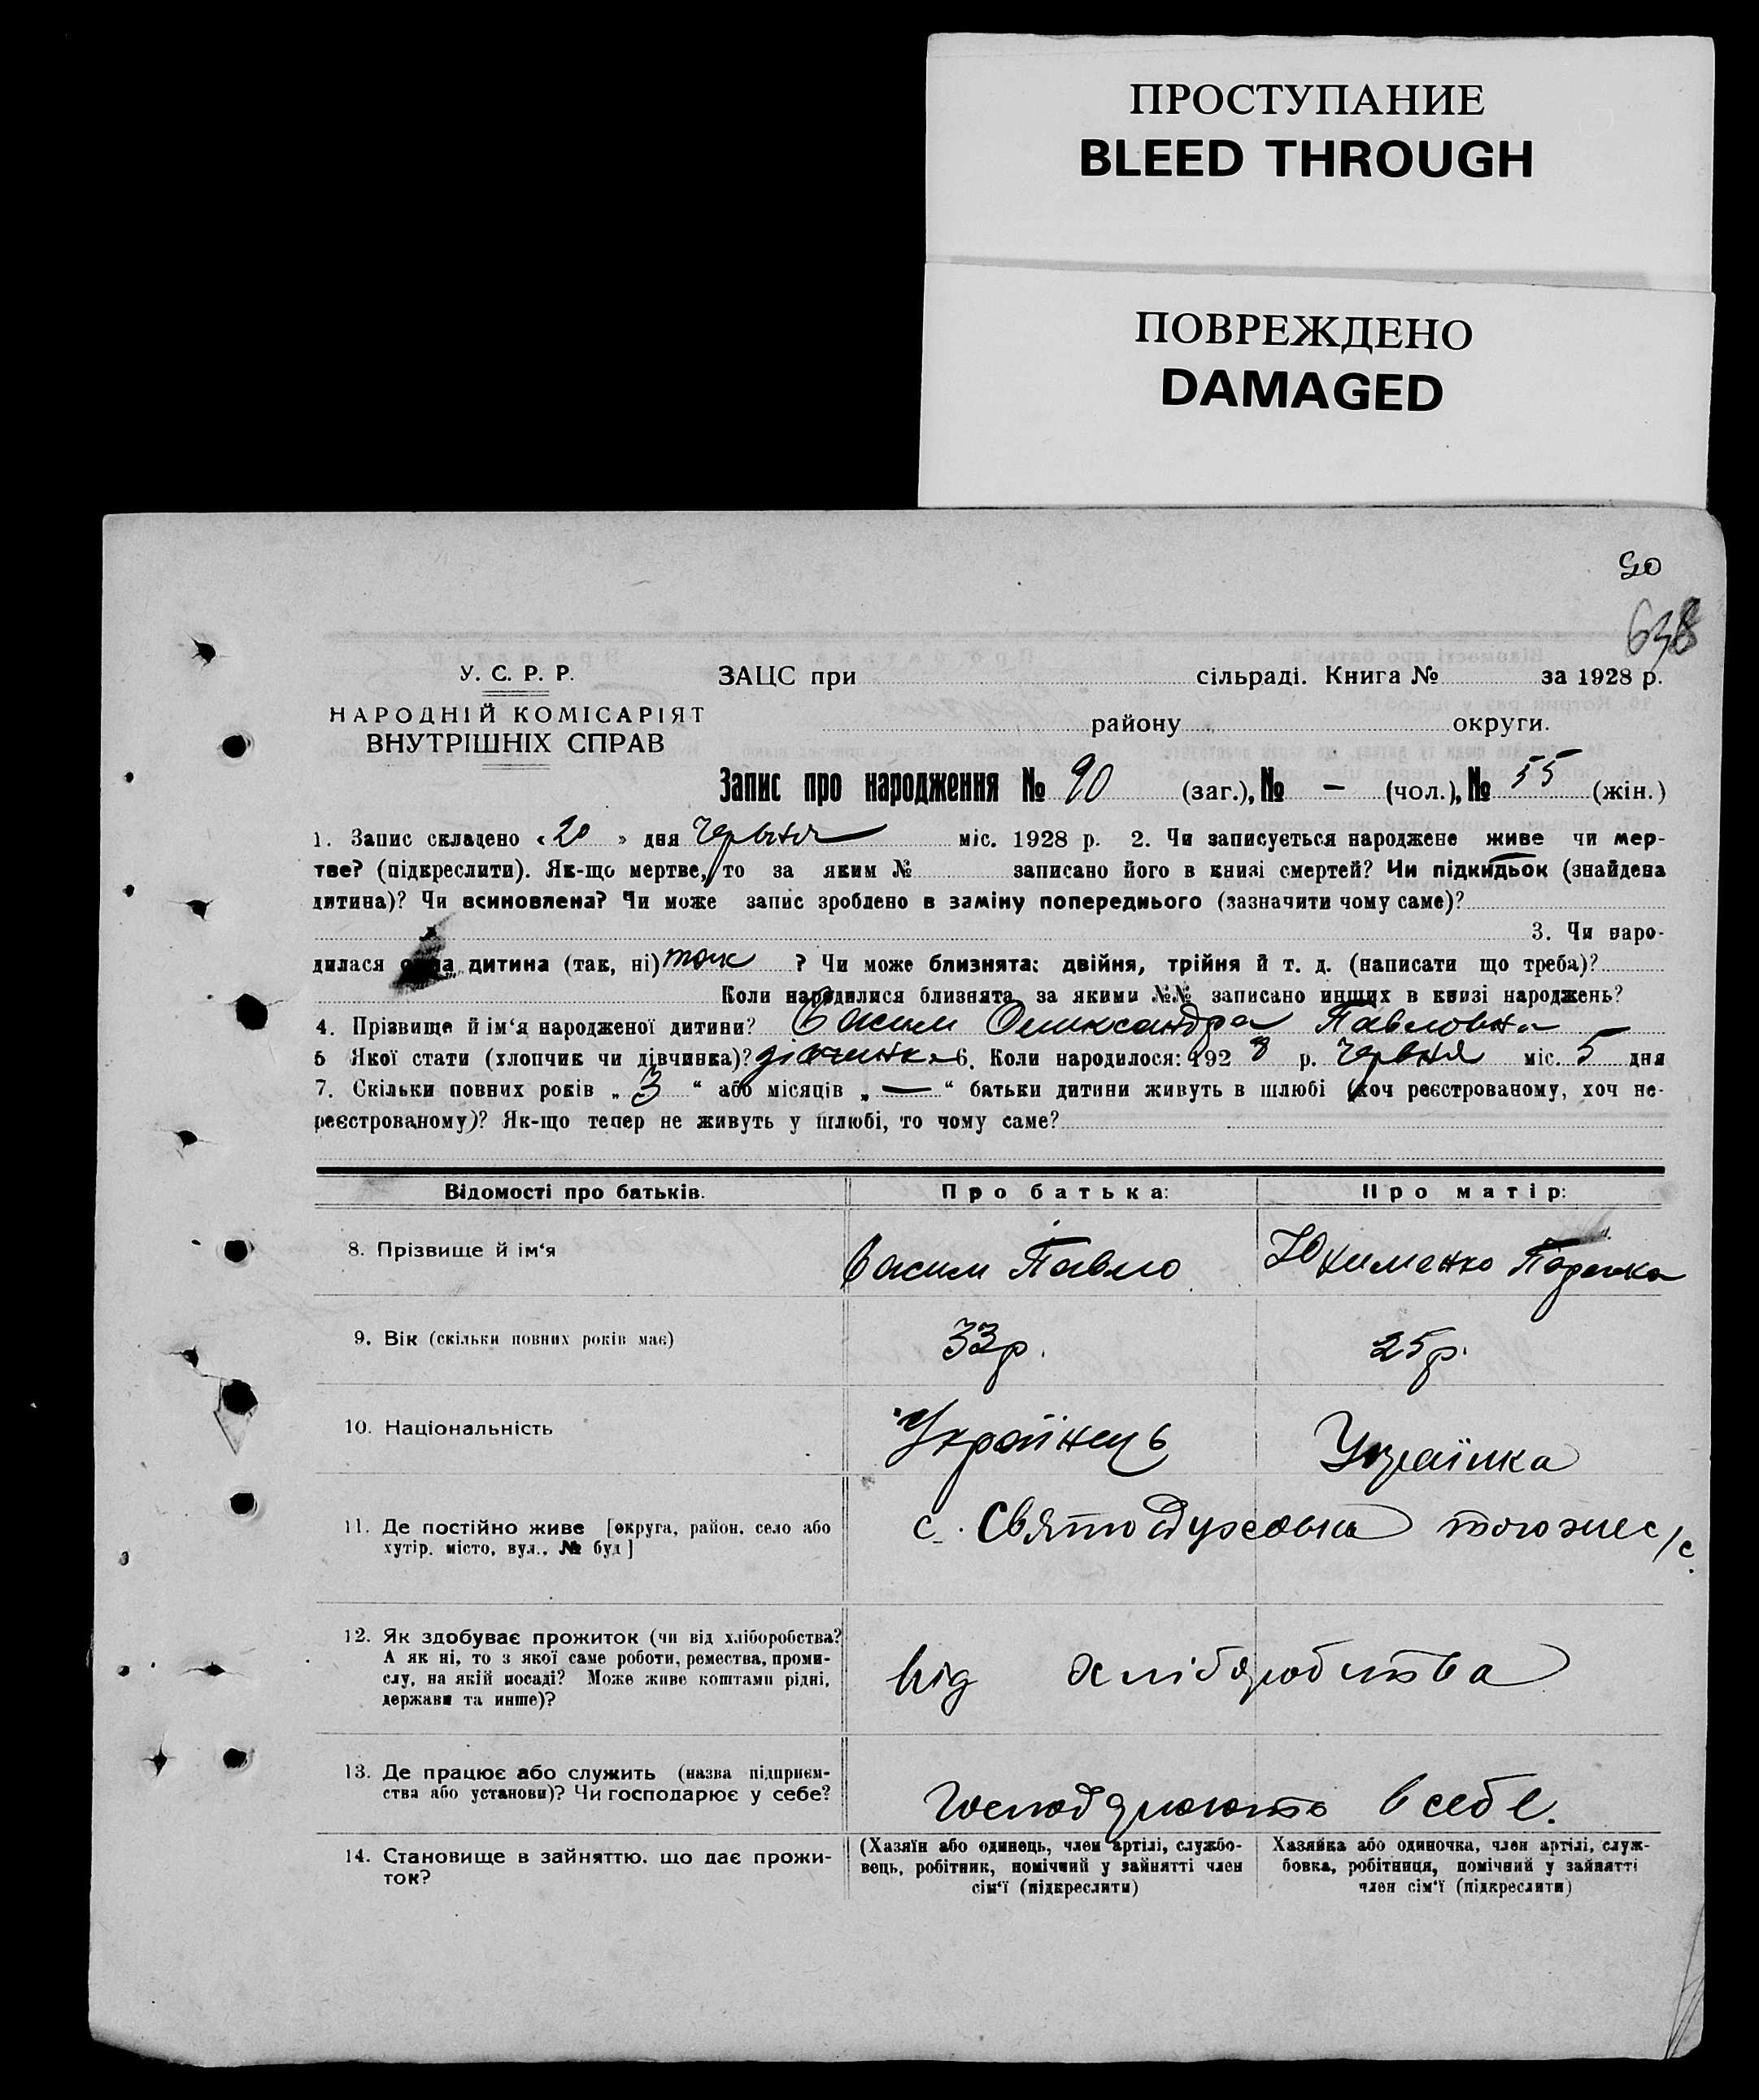 ПРОСТУПАНИЕ
BLEED THROUGH
ПОВРЕЖДЕНО
DAMAGED
90
638
У. С. Р. Р.
НАРОДНІЙ КОМІСАРІЯТ
ВНУТРІШНІХ СПРАВ
ЗАЦС при сільраді. Книга № за 1928 р.
району округи.
Запис про народження № 90 (заг.), № — (чол.), № 55 (жін.)
1. Запис складено «20» дня червня міс. 1928 р. 2. Чи записується народжене живе чи мер-
тве? (підкреслити). Як-що мертве, то за яким № записано його в книзі смертей? Чи підкидьок (знайдена
дитина)? Чи всиновлена? Чи може запис зроблено в заміну попереднього (зазначити чому саме)?
3. Чи наро-
дилася одна дитина (так, ні) так ? Чи може близнята: двійня, трійня й т. д. (написати що треба)?
Коли народилися близнята за якими №№ записано инших в книзі народжень?
4. Прізвище й ім‘я народженої дитини? Васим Олександра Павловна
5 Якої стати (хлопчик чи дівчинка)? дівчинка 6. Коли народилося: 1928 р. Червня міс. 5 дня
7. Скільки повних років „3“ або місяців „—“ батьки дитини живуть в шлюбі (хоч реєстрованому, хоч не-
реєстрованому)? Як-що тепер не живуть у шлюбі, то чому саме?
Відомості про батьків. Про батька: Про матір:
8. Прізвище й ім‘я Васим Павло Юхименко
9. Вік (скільки повних років має) 33р. 25р.
10. Національність Українець Українка
11. Де постійно живе [округа, район, село або
хутір, місто, вул., № буд]
с. Святодуховка тогож с/с.
12. Як здобуває прожиток (чи від хліборобства?
А як ні, то з якої саме роботи, ремества, проми-
слу, на якій посаді? Може живе коштами рідні,
держави та инше)?
від хліборобства
13. Де працює або служить (назва підприєм-
ства або установи)? Чи господарює у себе?
Господарюють в себе.
14. Становище в зайняттю, що дає прожи-
ток?
(Хазяїн або одинець, член артілі, службо-
вець, робітник, помічний у зайнятті член
сім‘ї (підкреслити)
Хазяйка або одиночка, член артілі, служ-
бовка, робітниця, помічний у зайнятті
член сім‘ї (підкреслити)